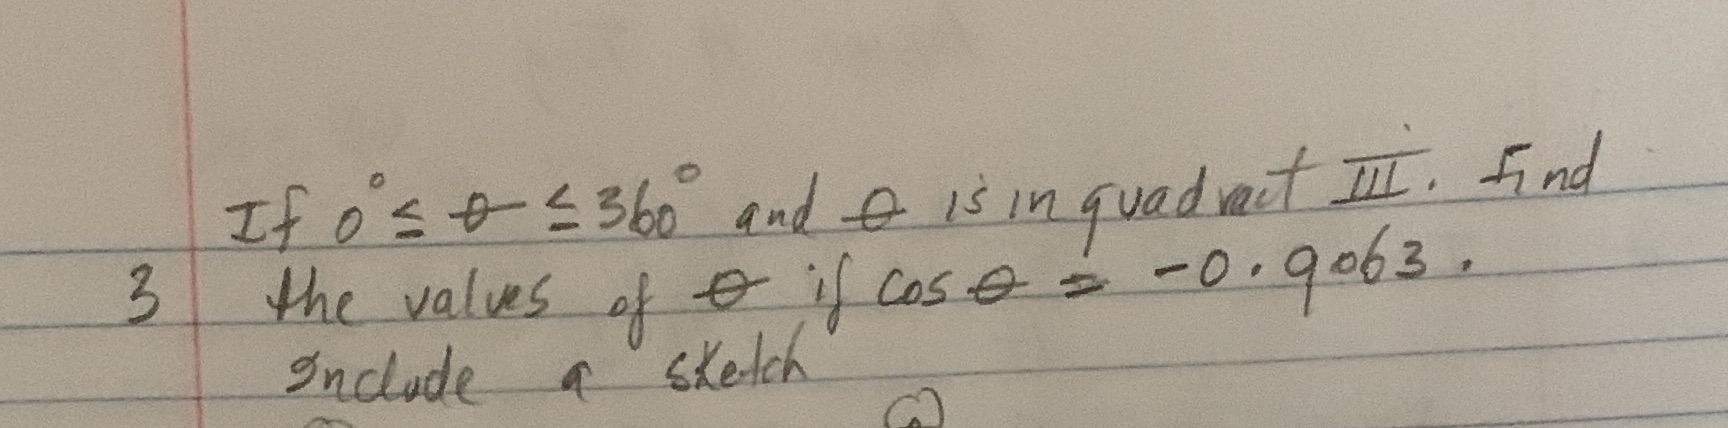 If 0° ≤ θ ≤ 360° and θ is in quadract III. Find
3 the values of θ if cos θ = -0.9063.
Include a sketch